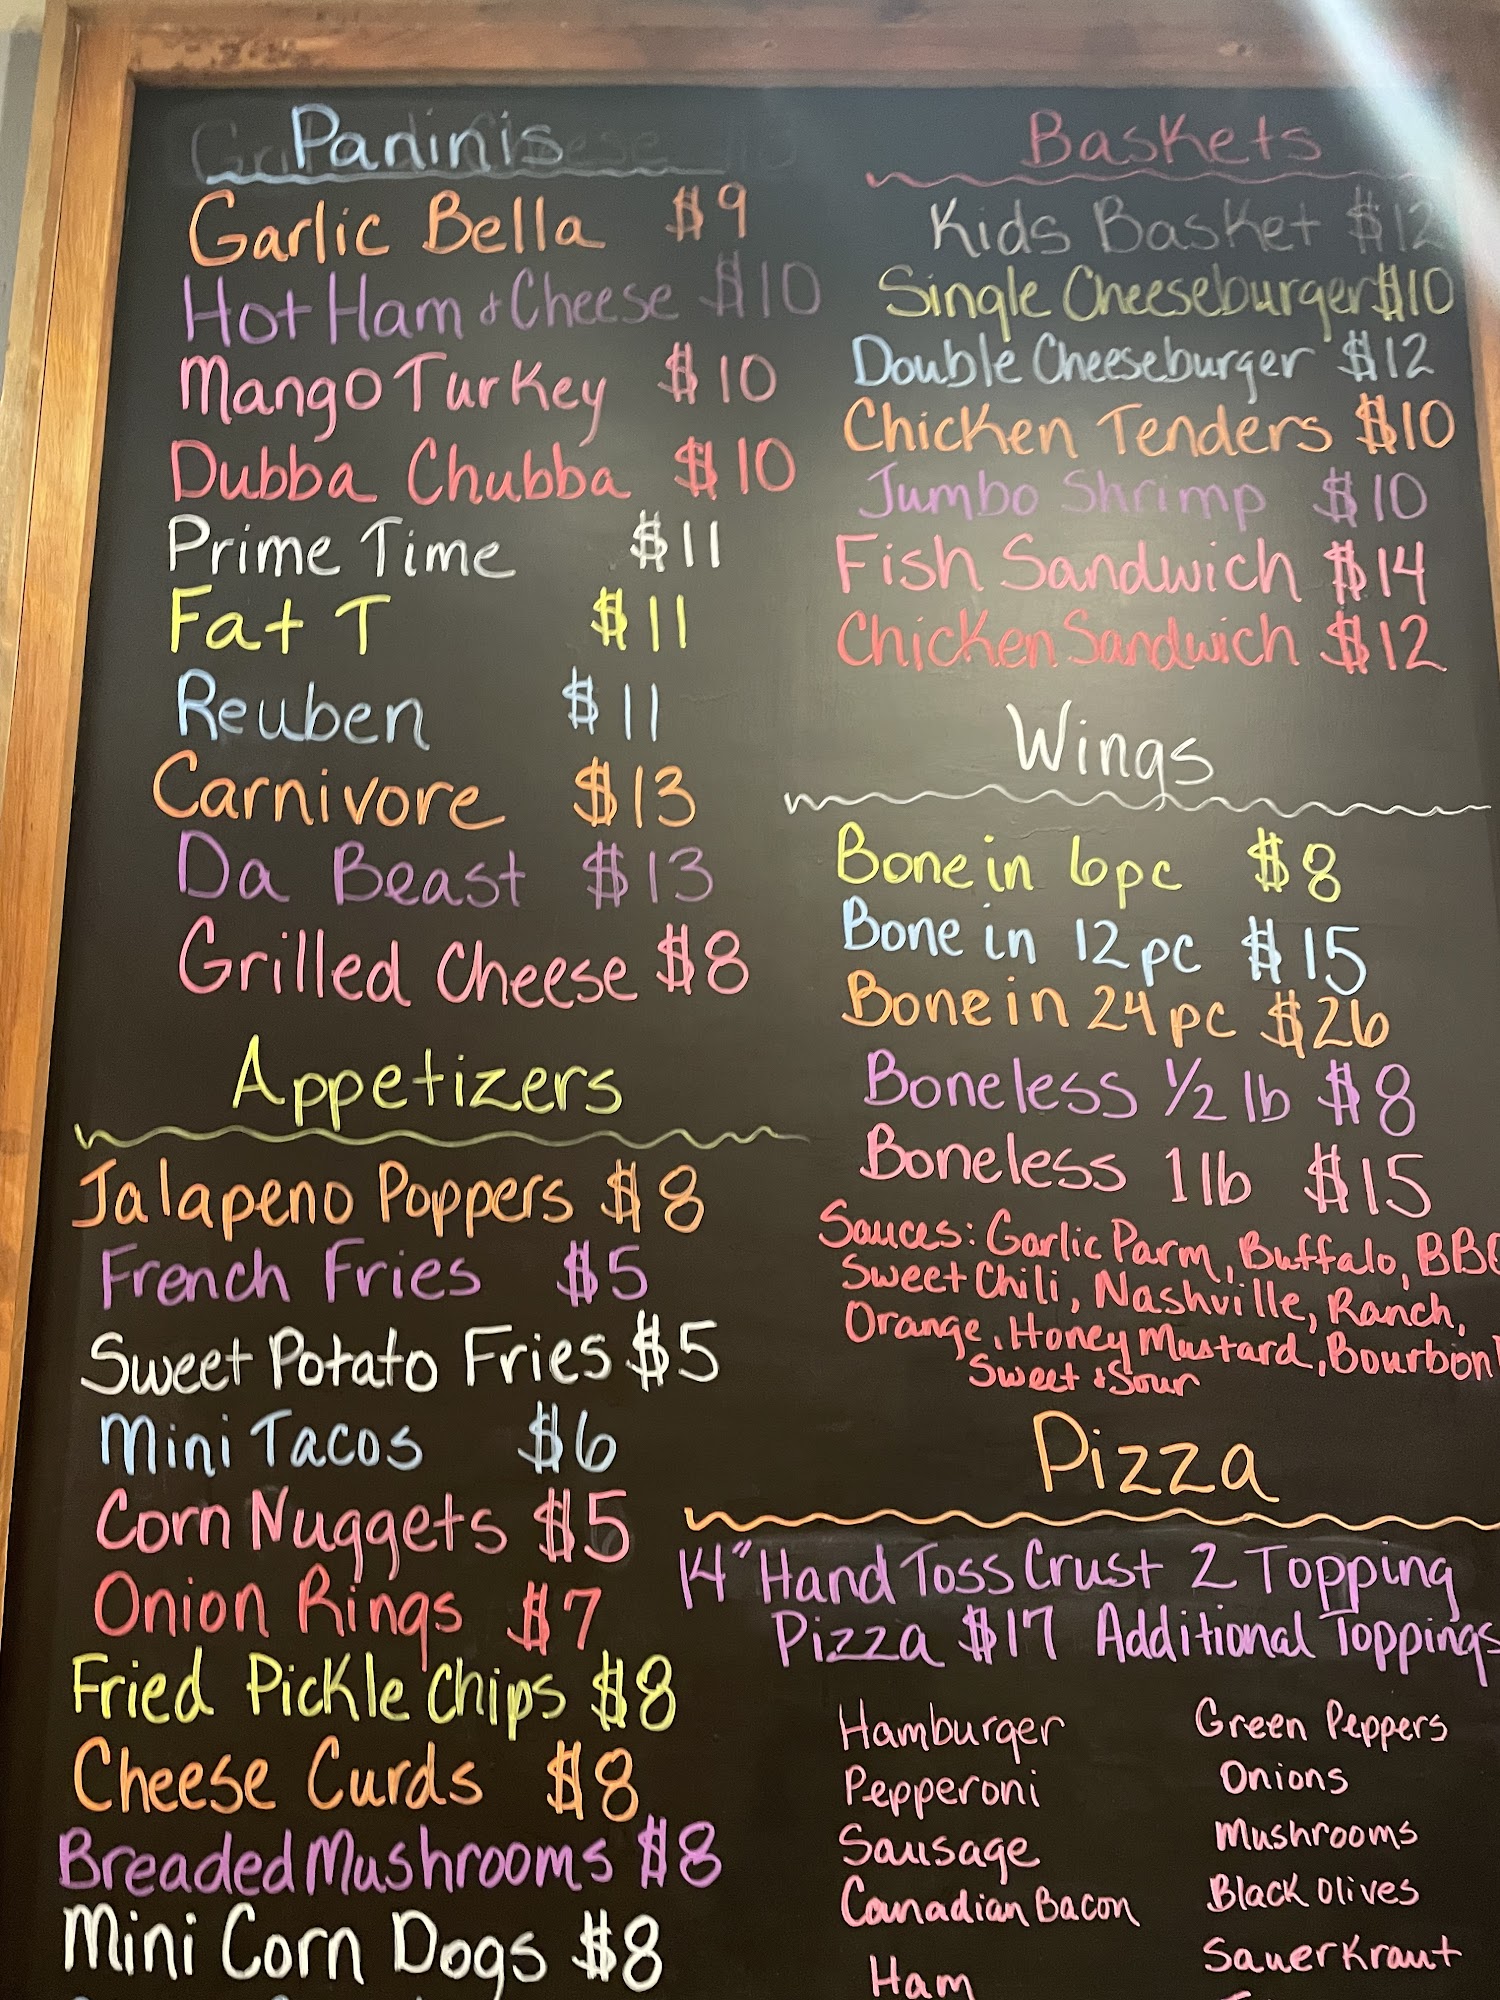 Paninis
Garlic Bella $9
Hot Ham & Cheese $10
Mango Turkey $10
Dubba Chubba $10
Prime Time $11
Fat T $11
Reuben $11
Carnivore $13
Da Beast $13
Grilled Cheese $8
Appetizers
Jalapeno Poppers $8
French Fries $5
Sweet Potato Fries $5
Mini Tacos $6
Corn Nuggets $5
Onion Rings $7
Fried Pickle Chips $8
Cheese Curds $8
Breaded Mushrooms $8
Mini Corn Dogs $8
Baskets
Kids Basket $12
Single Cheeseburger $10
Double Cheeseburger $12
Chicken Tenders $10
Jumbo Shrimp $10
Fish Sandwich $14
Chicken Sandwich $12
Wings
Bone in 6pc $8
Bone in 12pc $15
Bone in 24pc $26
Boneless 1/2 lb $8
Boneless 1 lb $15
Sauces: Garlic Parm, Buffalo, BBQ
Sweet Chili, Nashville, Ranch,
Orange, Honey Mustard, Bourbon
Sweet & Sour
Pizza
14" Hand Toss Crust 2 Topping
Pizza $17 Additional Toppings
Hamburger
Pepperoni
Sausage
Canadian Bacon
Ham
Green Peppers
Onions
Mushrooms
Black Olives
Sauerkraut